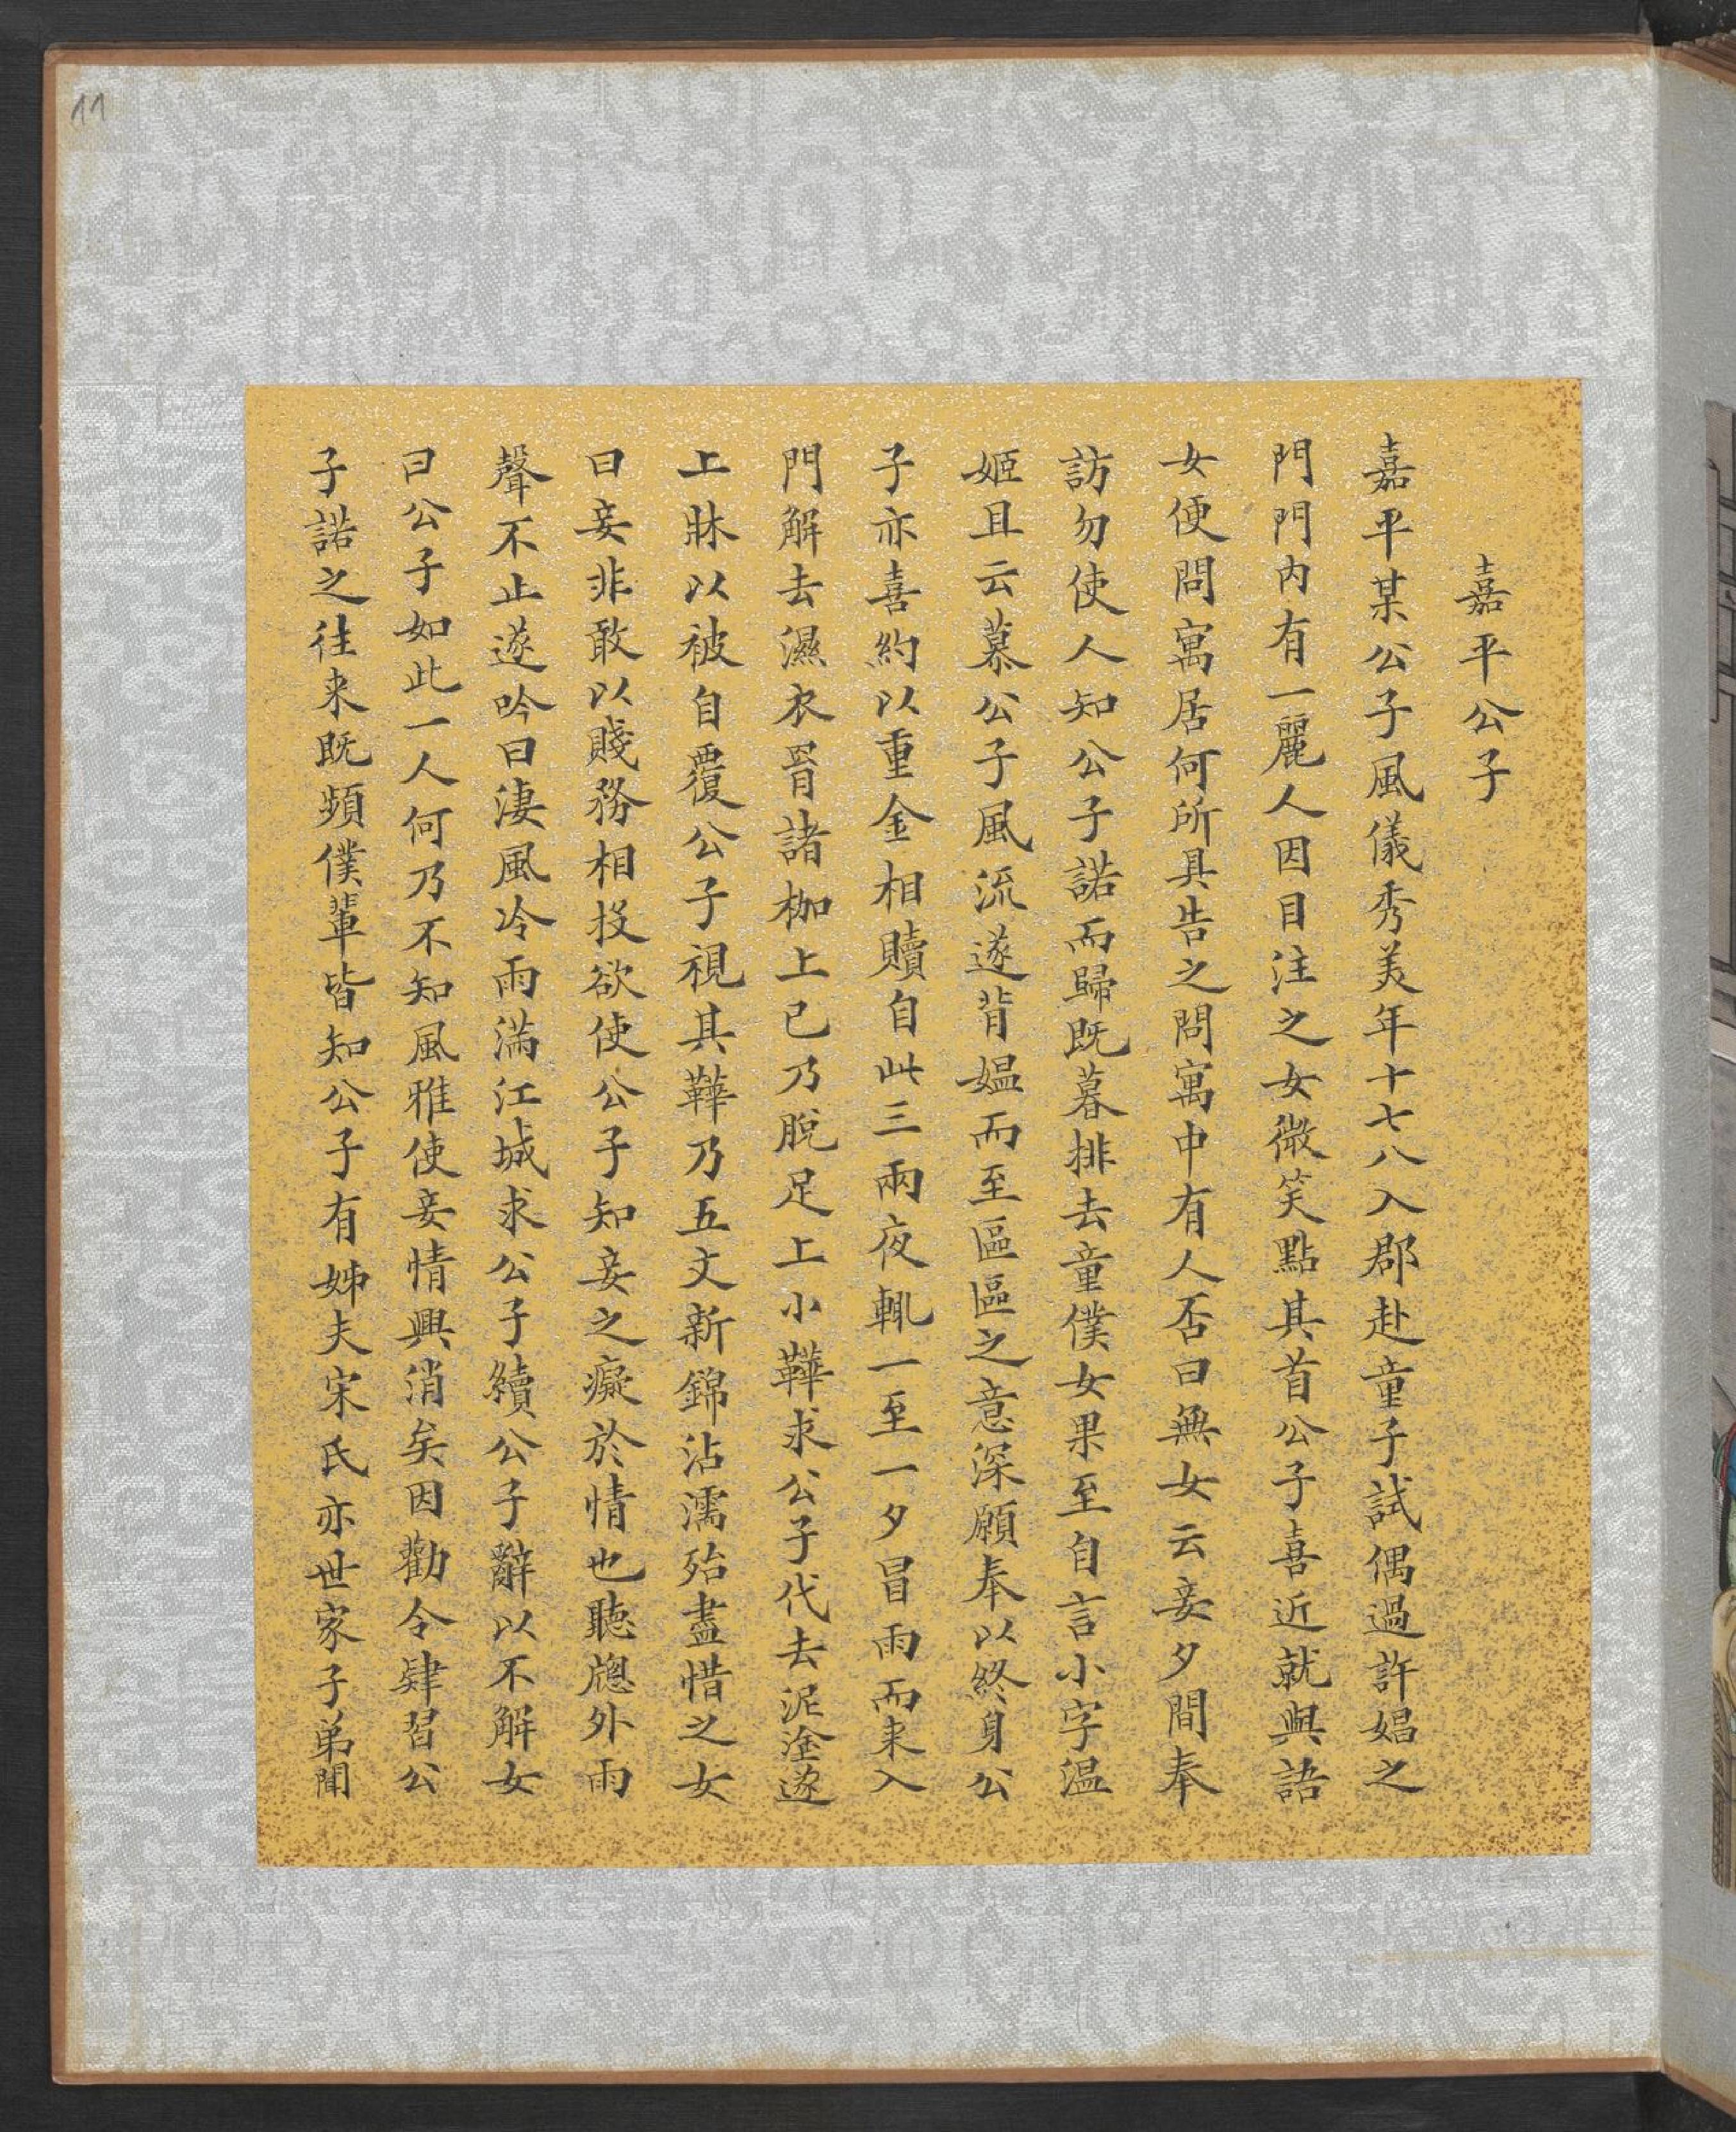 嘉平公子
嘉平某公子風儀秀美年十七八入郡赴童子試偶過許娼之
門門內有一麗人因目注之女微笑點其首公子喜近就與語
女便問寓居何所具告之問寓中有人否曰無女云妾夕間奉
訪勿使人知公子諾而歸既暮排去童僕女果至自言小字温
姬且云慕公子風流遂背媪而至區區之意深願奉以終身公
子亦喜約以重金相贖自此三兩夜輒一至一夕冒雨而来入
門解去濕衣罥諸枷上已乃脫足上小鞾求公子代去泥塗遂
上牀以被自覆公子視其鞾乃五文新錦沾濡殆盡惜之女
曰妾非敢以賤務相役欲使公子知妾之癡於情也聽牕外雨
聲不止遂吟曰淒風冷雨滿江城求公子續公子辭以不解女
曰公子如此一人何乃不知風雅使妾情興消矣因勸令肄習公
子諾之往来既頻僕輩皆知公子有姊夫宋氏亦世家子弟聞
11